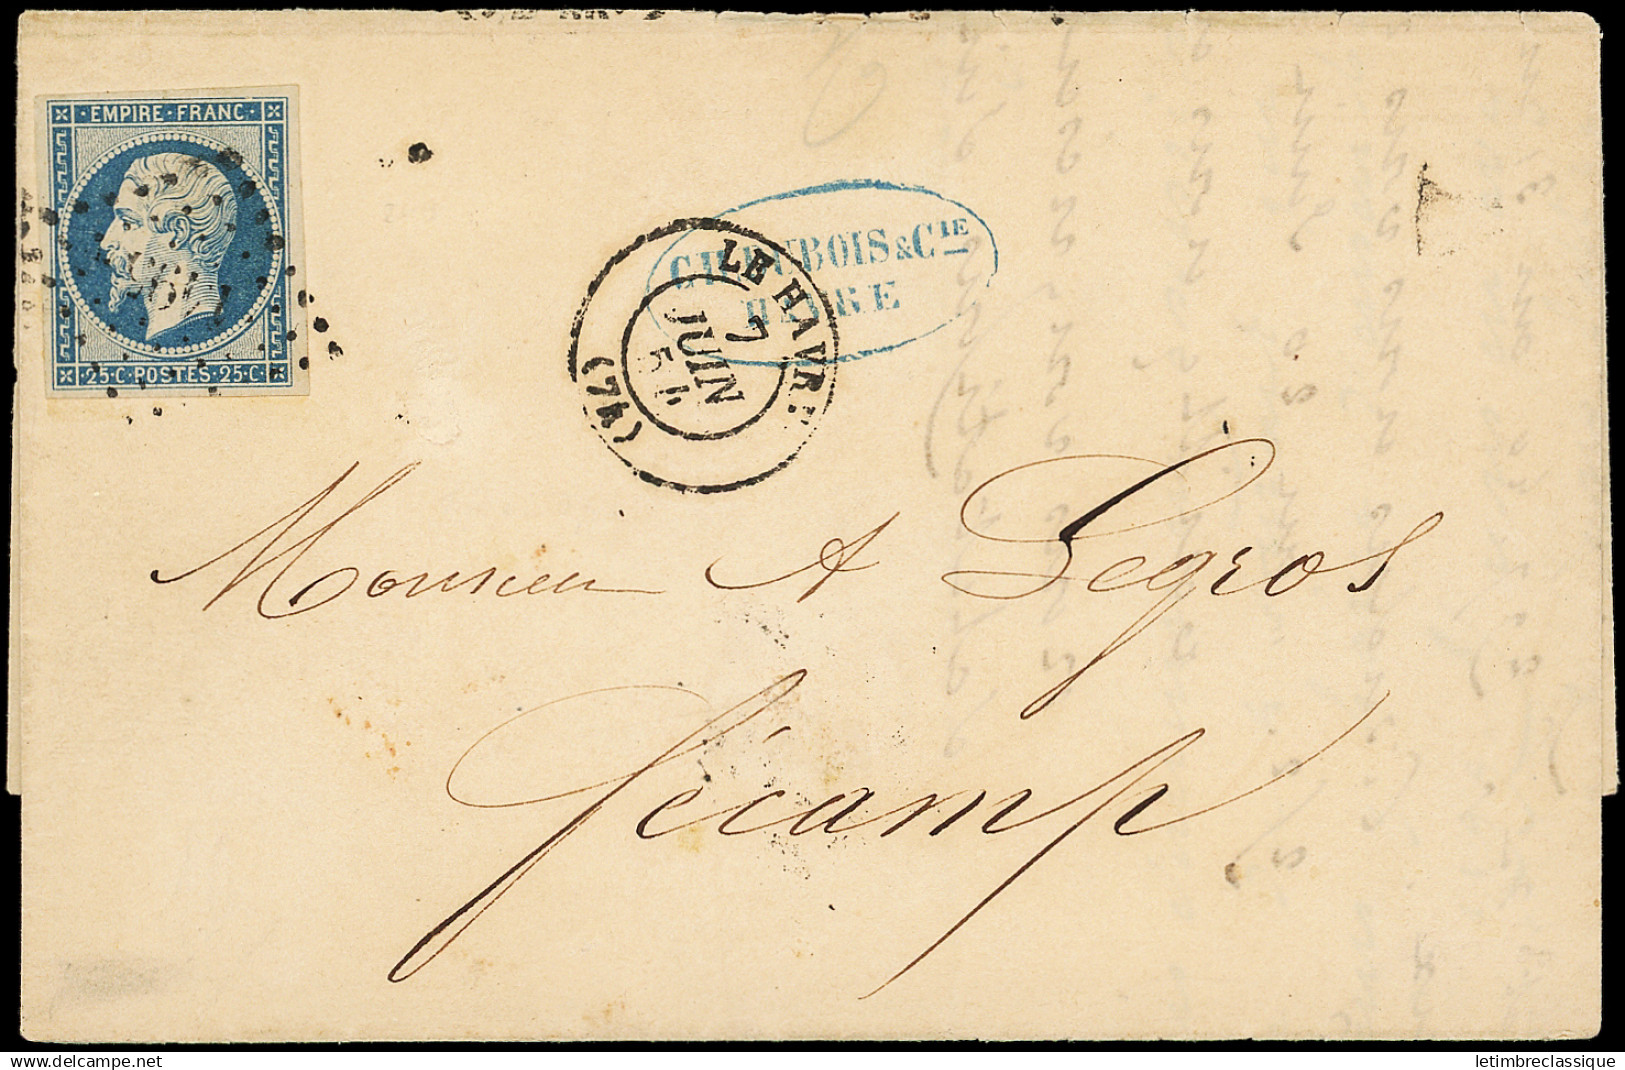 EMPIRE · FRANC ·
· 25 · C · POSTES · 25 · C ·
1495
CH DUBOIS & CIE
HAVRE
LE HAVRE
7
JUIN
54
(74)
Monsieur A Legros
fécamp
delcampe.net
letimbreclassique